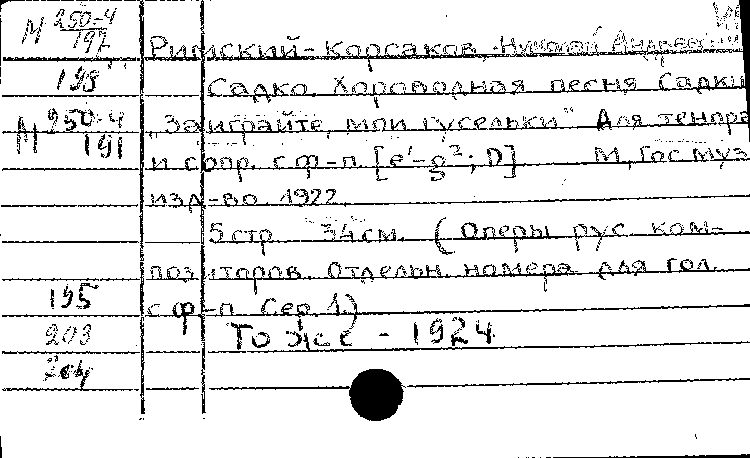 М 250-4/197
Римский-Корсаков, Николай Андреев.
193
Садко. Хороводная песня Садки
М 250-4/191
„Заиграйте, мои гусельки" Для тенора
и сопр. с ф-п. [e'-g²; D] М, Гос муз
изд-во. 1922.
5 стр. 34 см. (Оперы рус. ком-
позиторов. Отдельн. номера для гол.
195
с ф-п. Сер. 1.)
203
То же - 1924
204